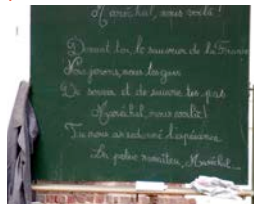 Maréchal, nous voilà !
Devant toi, le sauveur de la France
Nous jurons, nous les gars
De servir et de suivre tes pas
Maréchal, nous voilà !
Tu nous as redonné l'espérance
La patrie renaîtra, Maréchal...